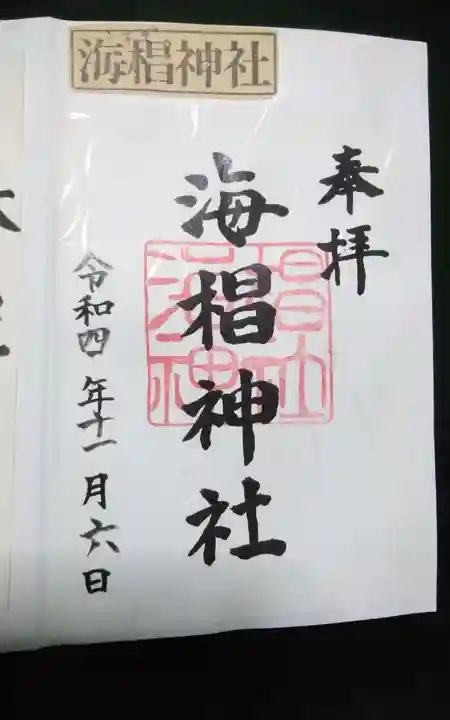 海椙神社
奉拝
海椙神社
海椙神社
令和四年十一月六日